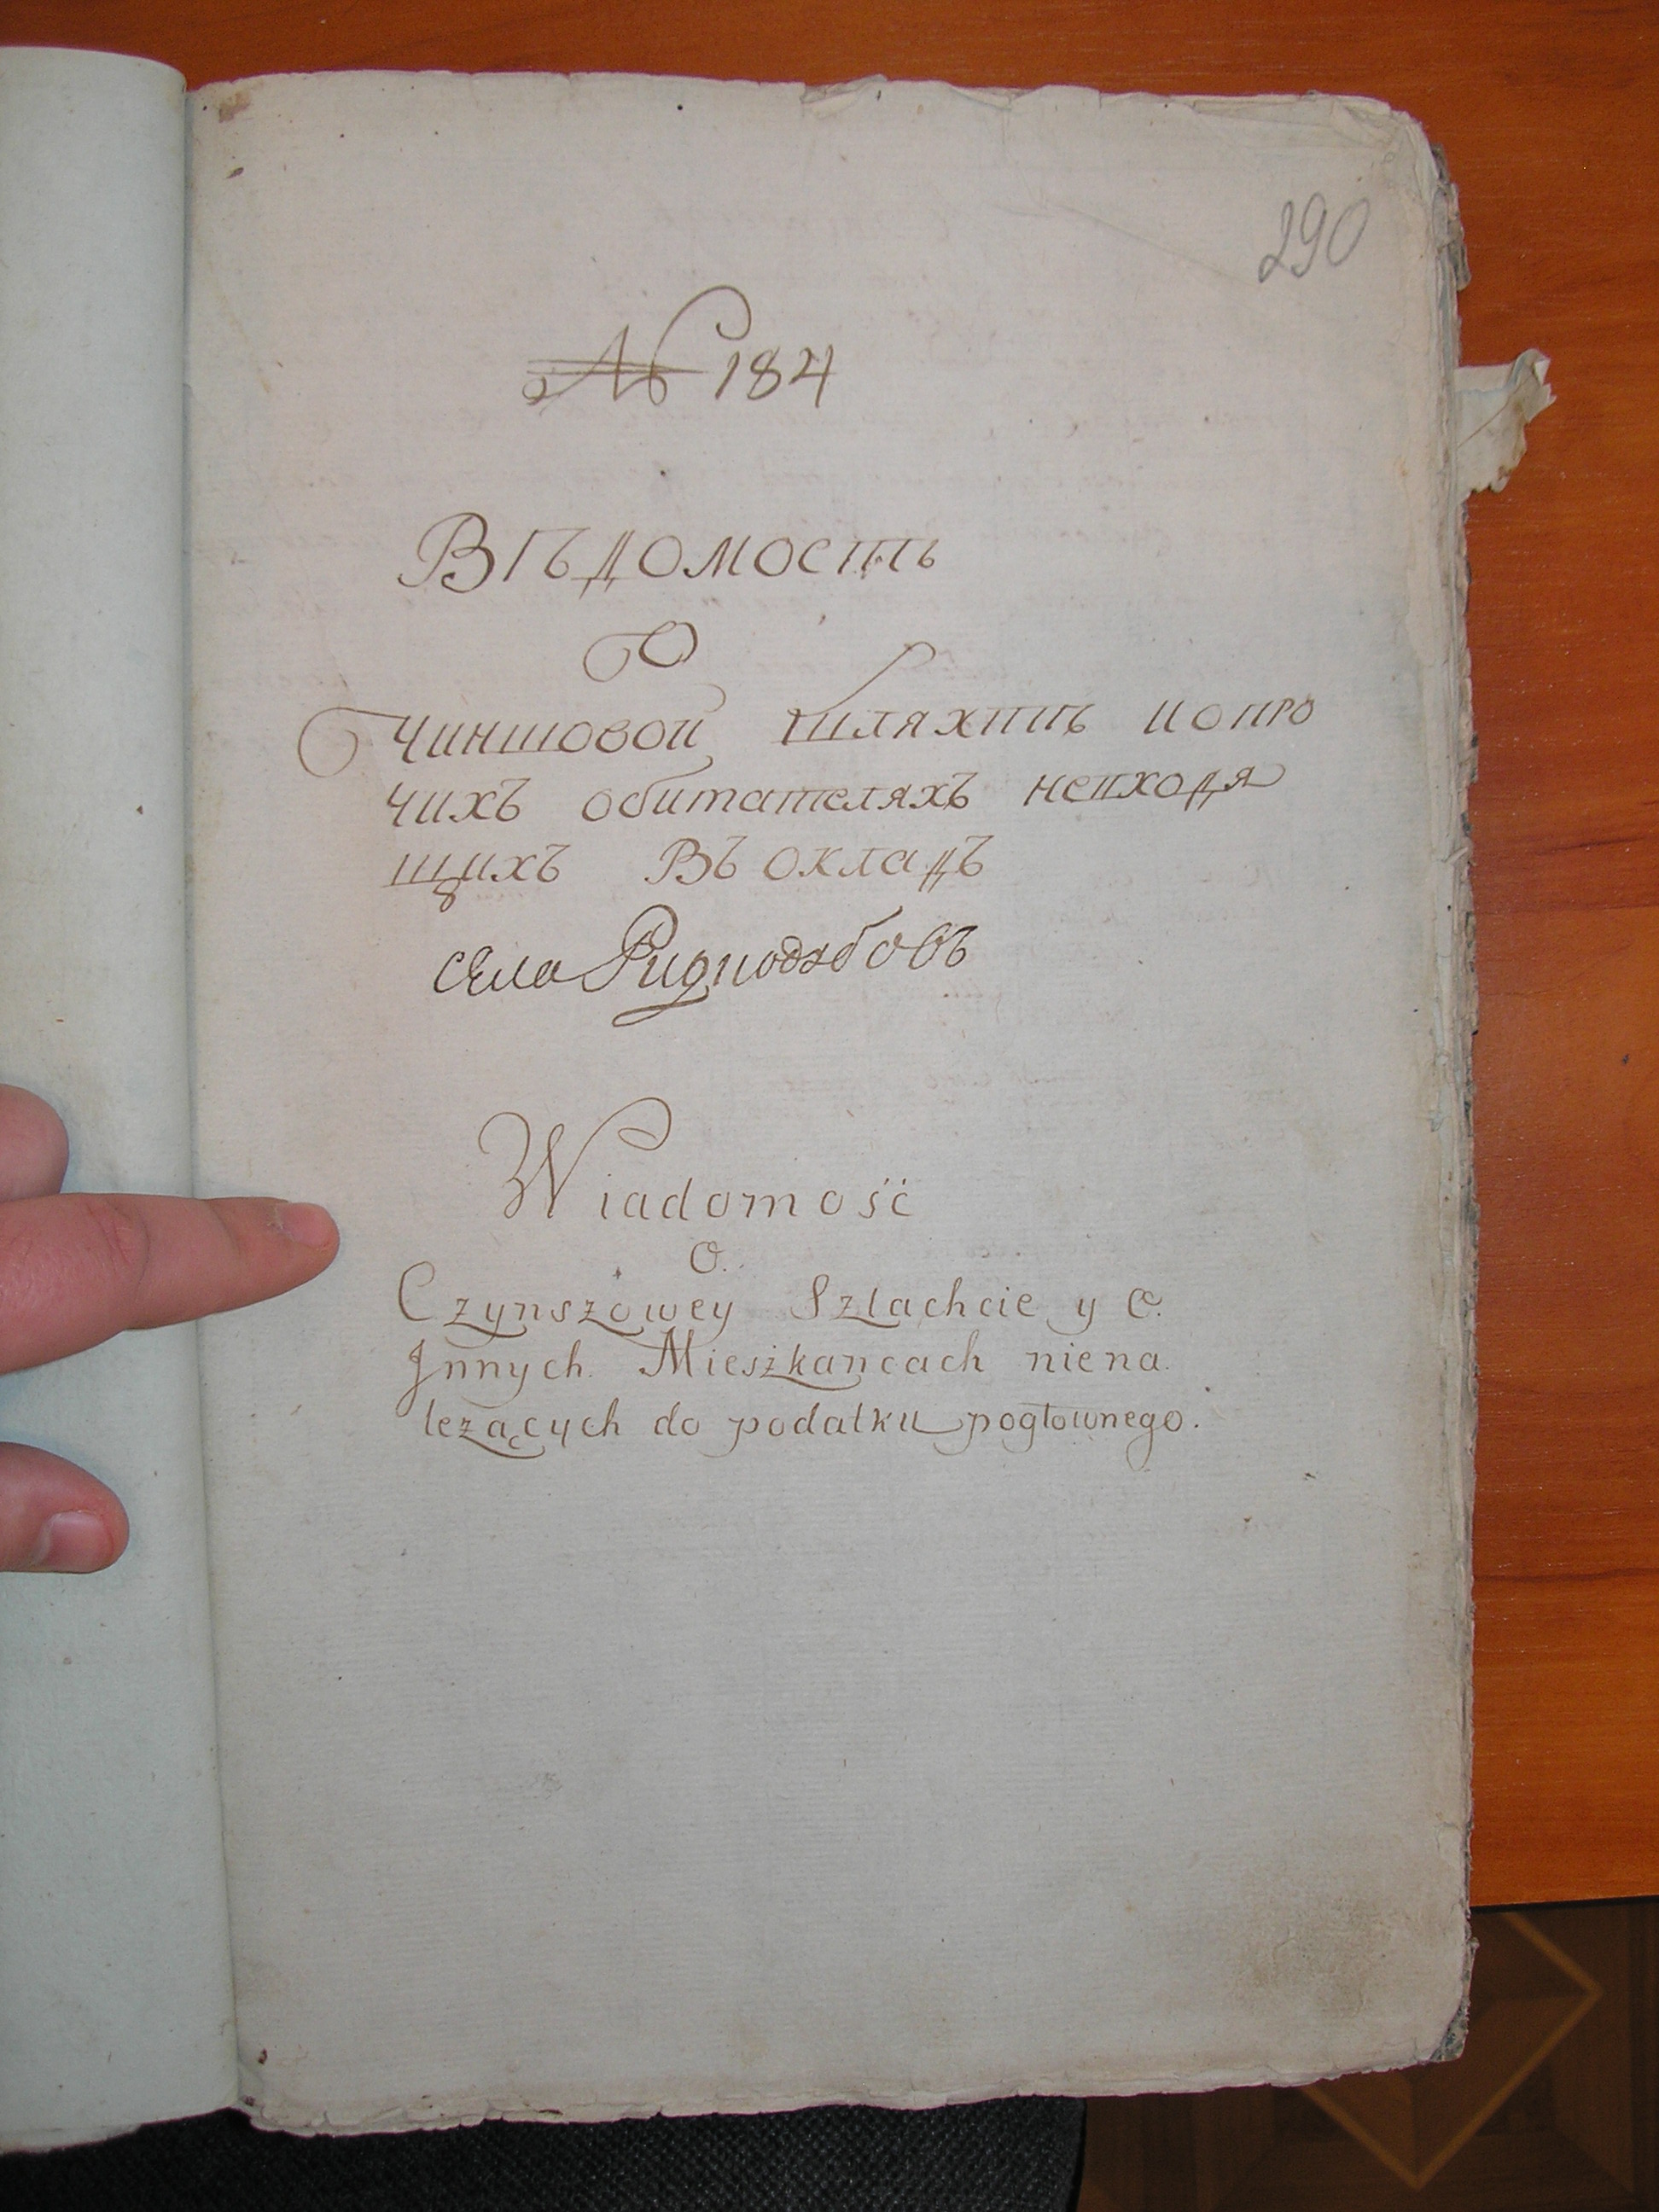 290
№ 184
Вѣдомость
О
Чиншовой шляхтѣ и о про
чихъ обитателяхъ невходя
щихъ въ окладъ
села
Wiadomość
O.
Czynszowey Szlachcie y O.
Innych. Mieszkancach niena
leżących do podatku pogłownego.